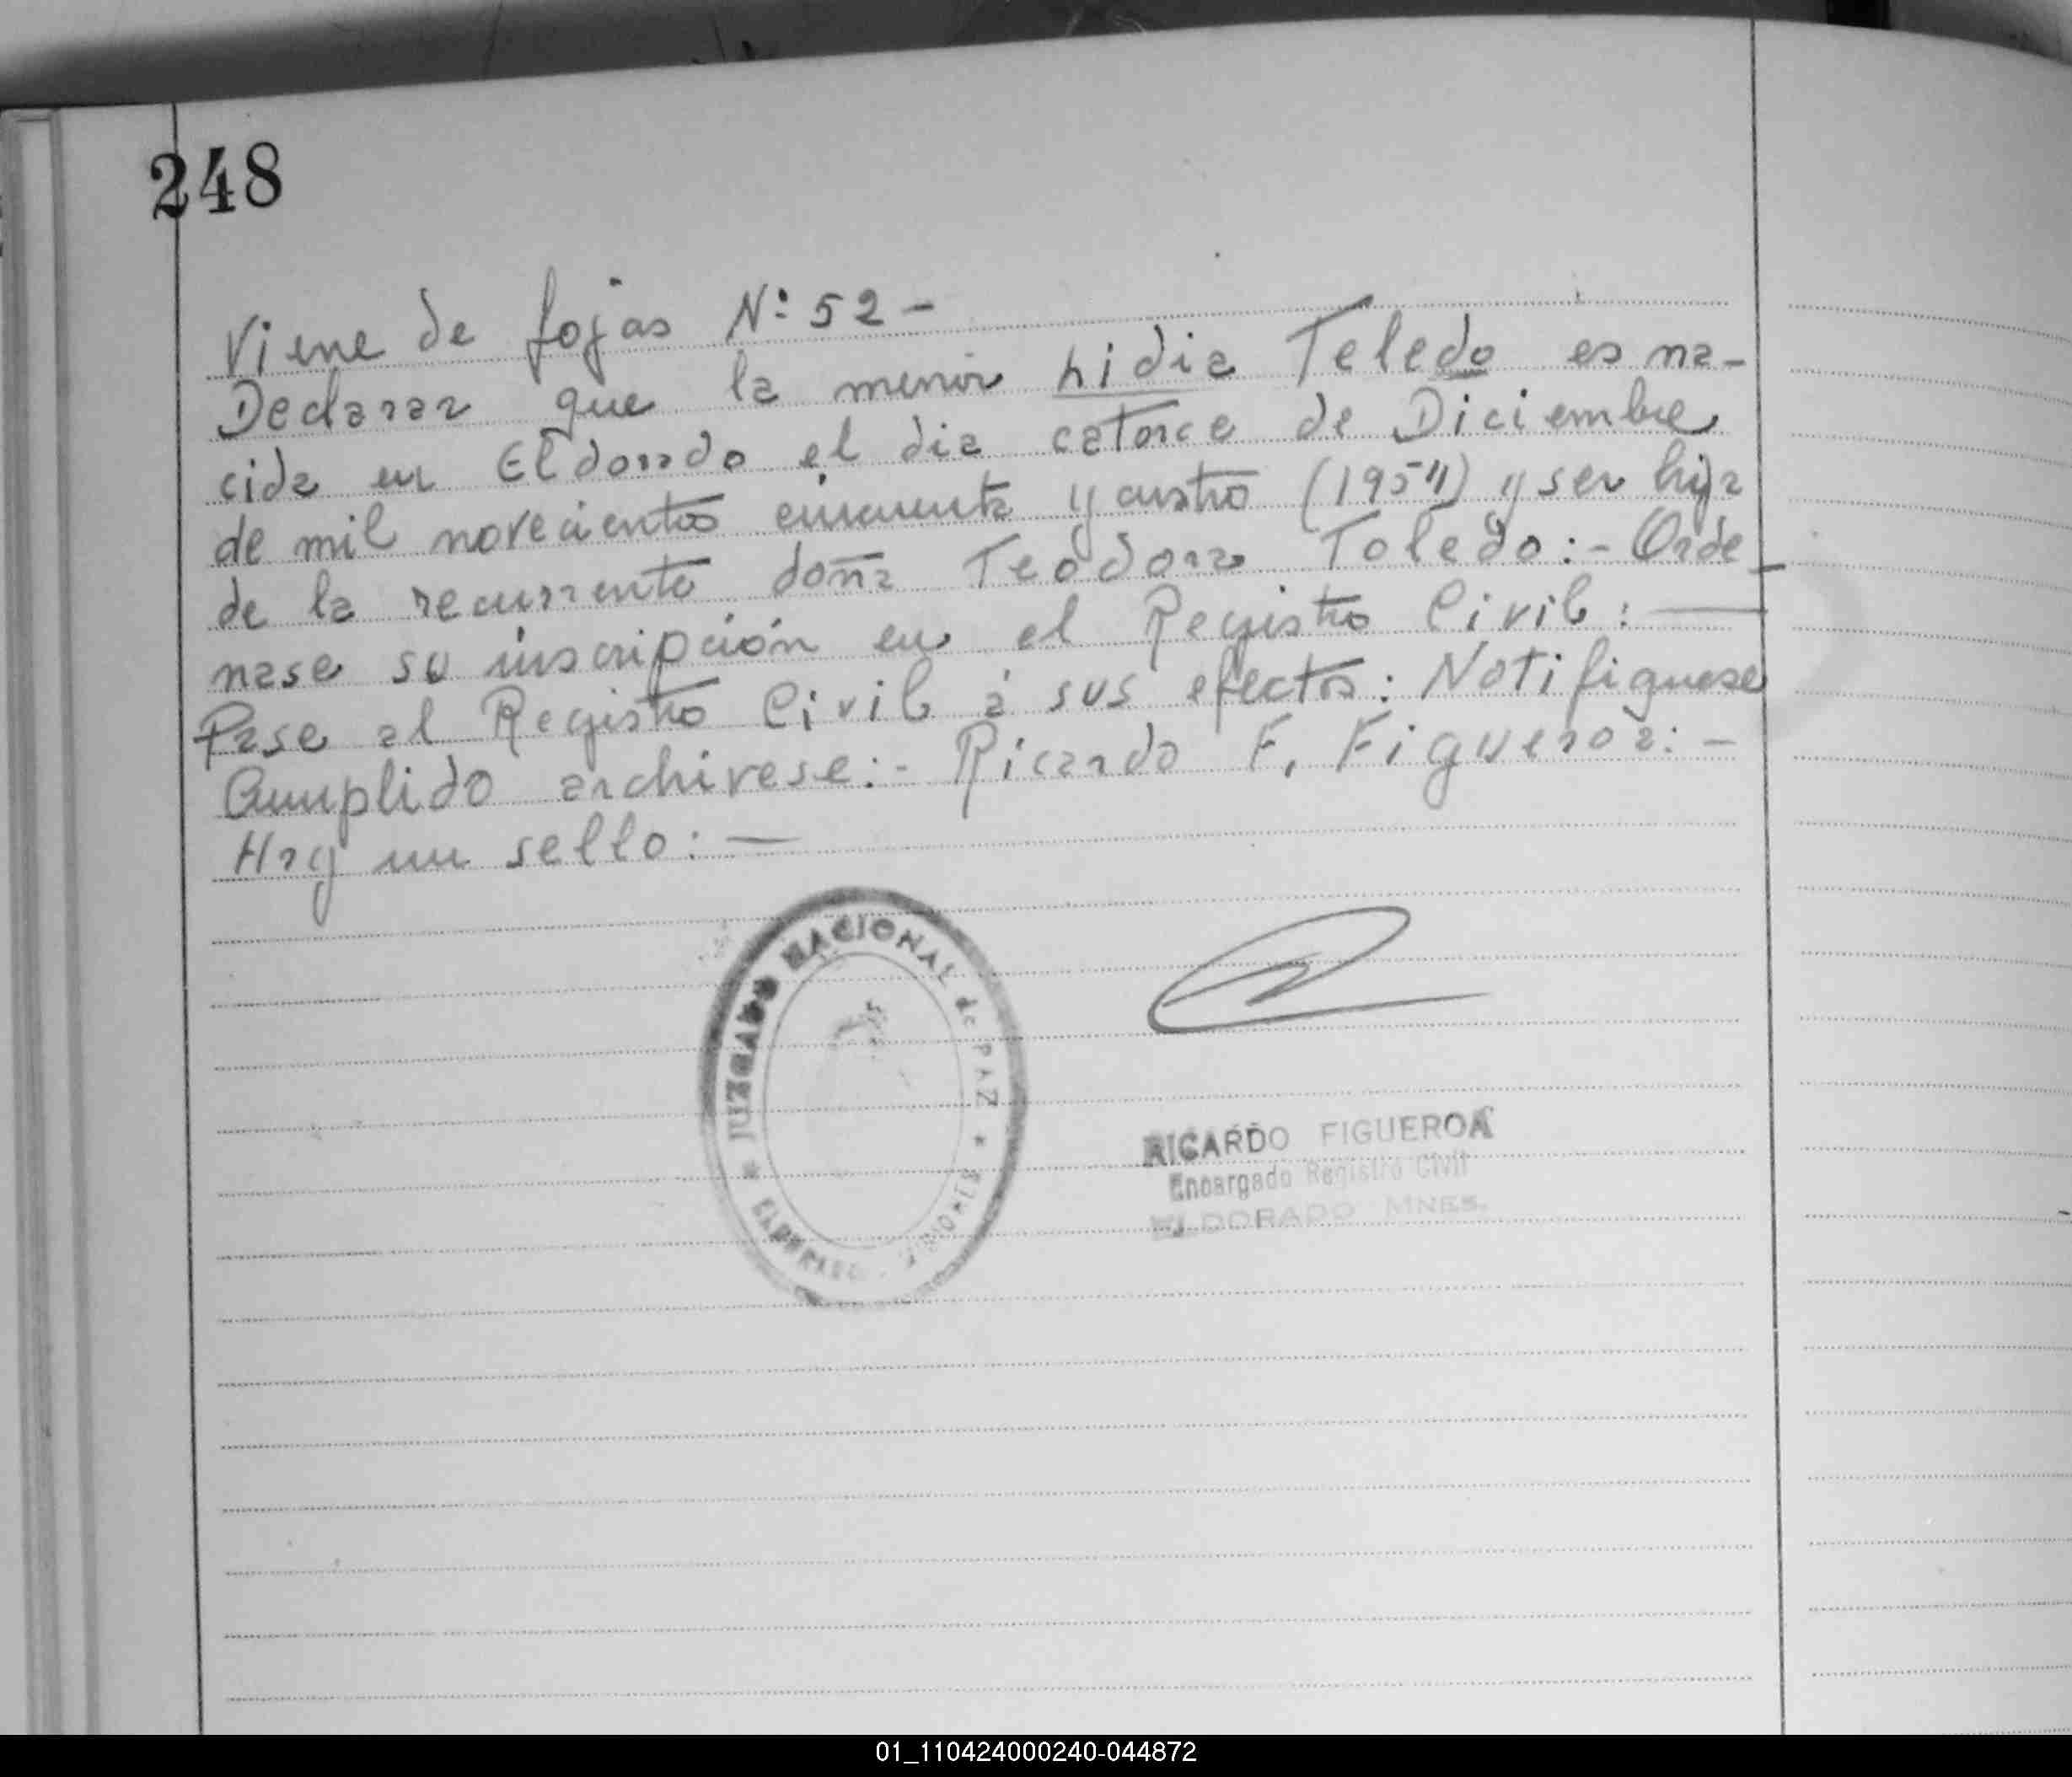 248
Viene de fojas N: 52 -
Declarar que la menor Lidia Teledo es na-
cida en Eldorado el dia catorce de Diciembre
de mil novecientos cincuenta y cuatro (1954) y ser hija
de la recurrente doña Teodora Toledo:- Orde-
nase su inscripción en el Registro Civil: —
Pase al Registro Civil á sus efectos: Notifiquese
Cumplido archivese:- Ricardo F. Figueroa:-
Hay un sello: —
JUZGADO NACIONAL de PAZ * MISIONES
* ELDORADO
RICARDO FIGUEROA
Encargado Registro Civil
ELDORADO MNES.
01_110424000240-044872